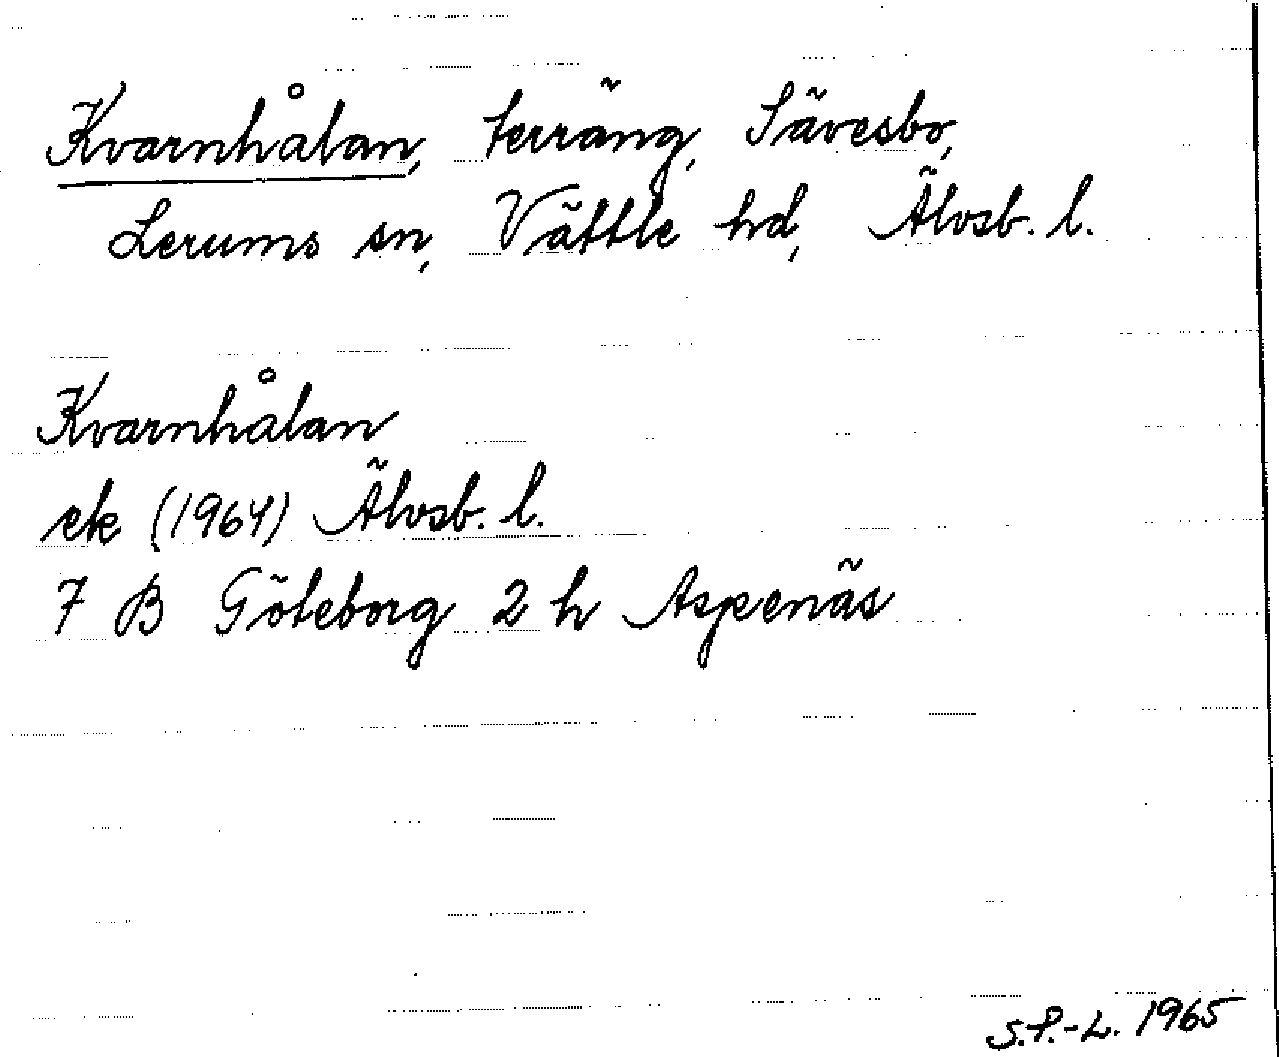 Kvarnhålan, terräng, Sävesbo,
Lerums sn, Vättle hd, Älvsb. l.
Kvarnhålan
ek (1964) Älvsb. l.
7 B Göteborg 2 h Aspenäs
S.P.-L. 1965